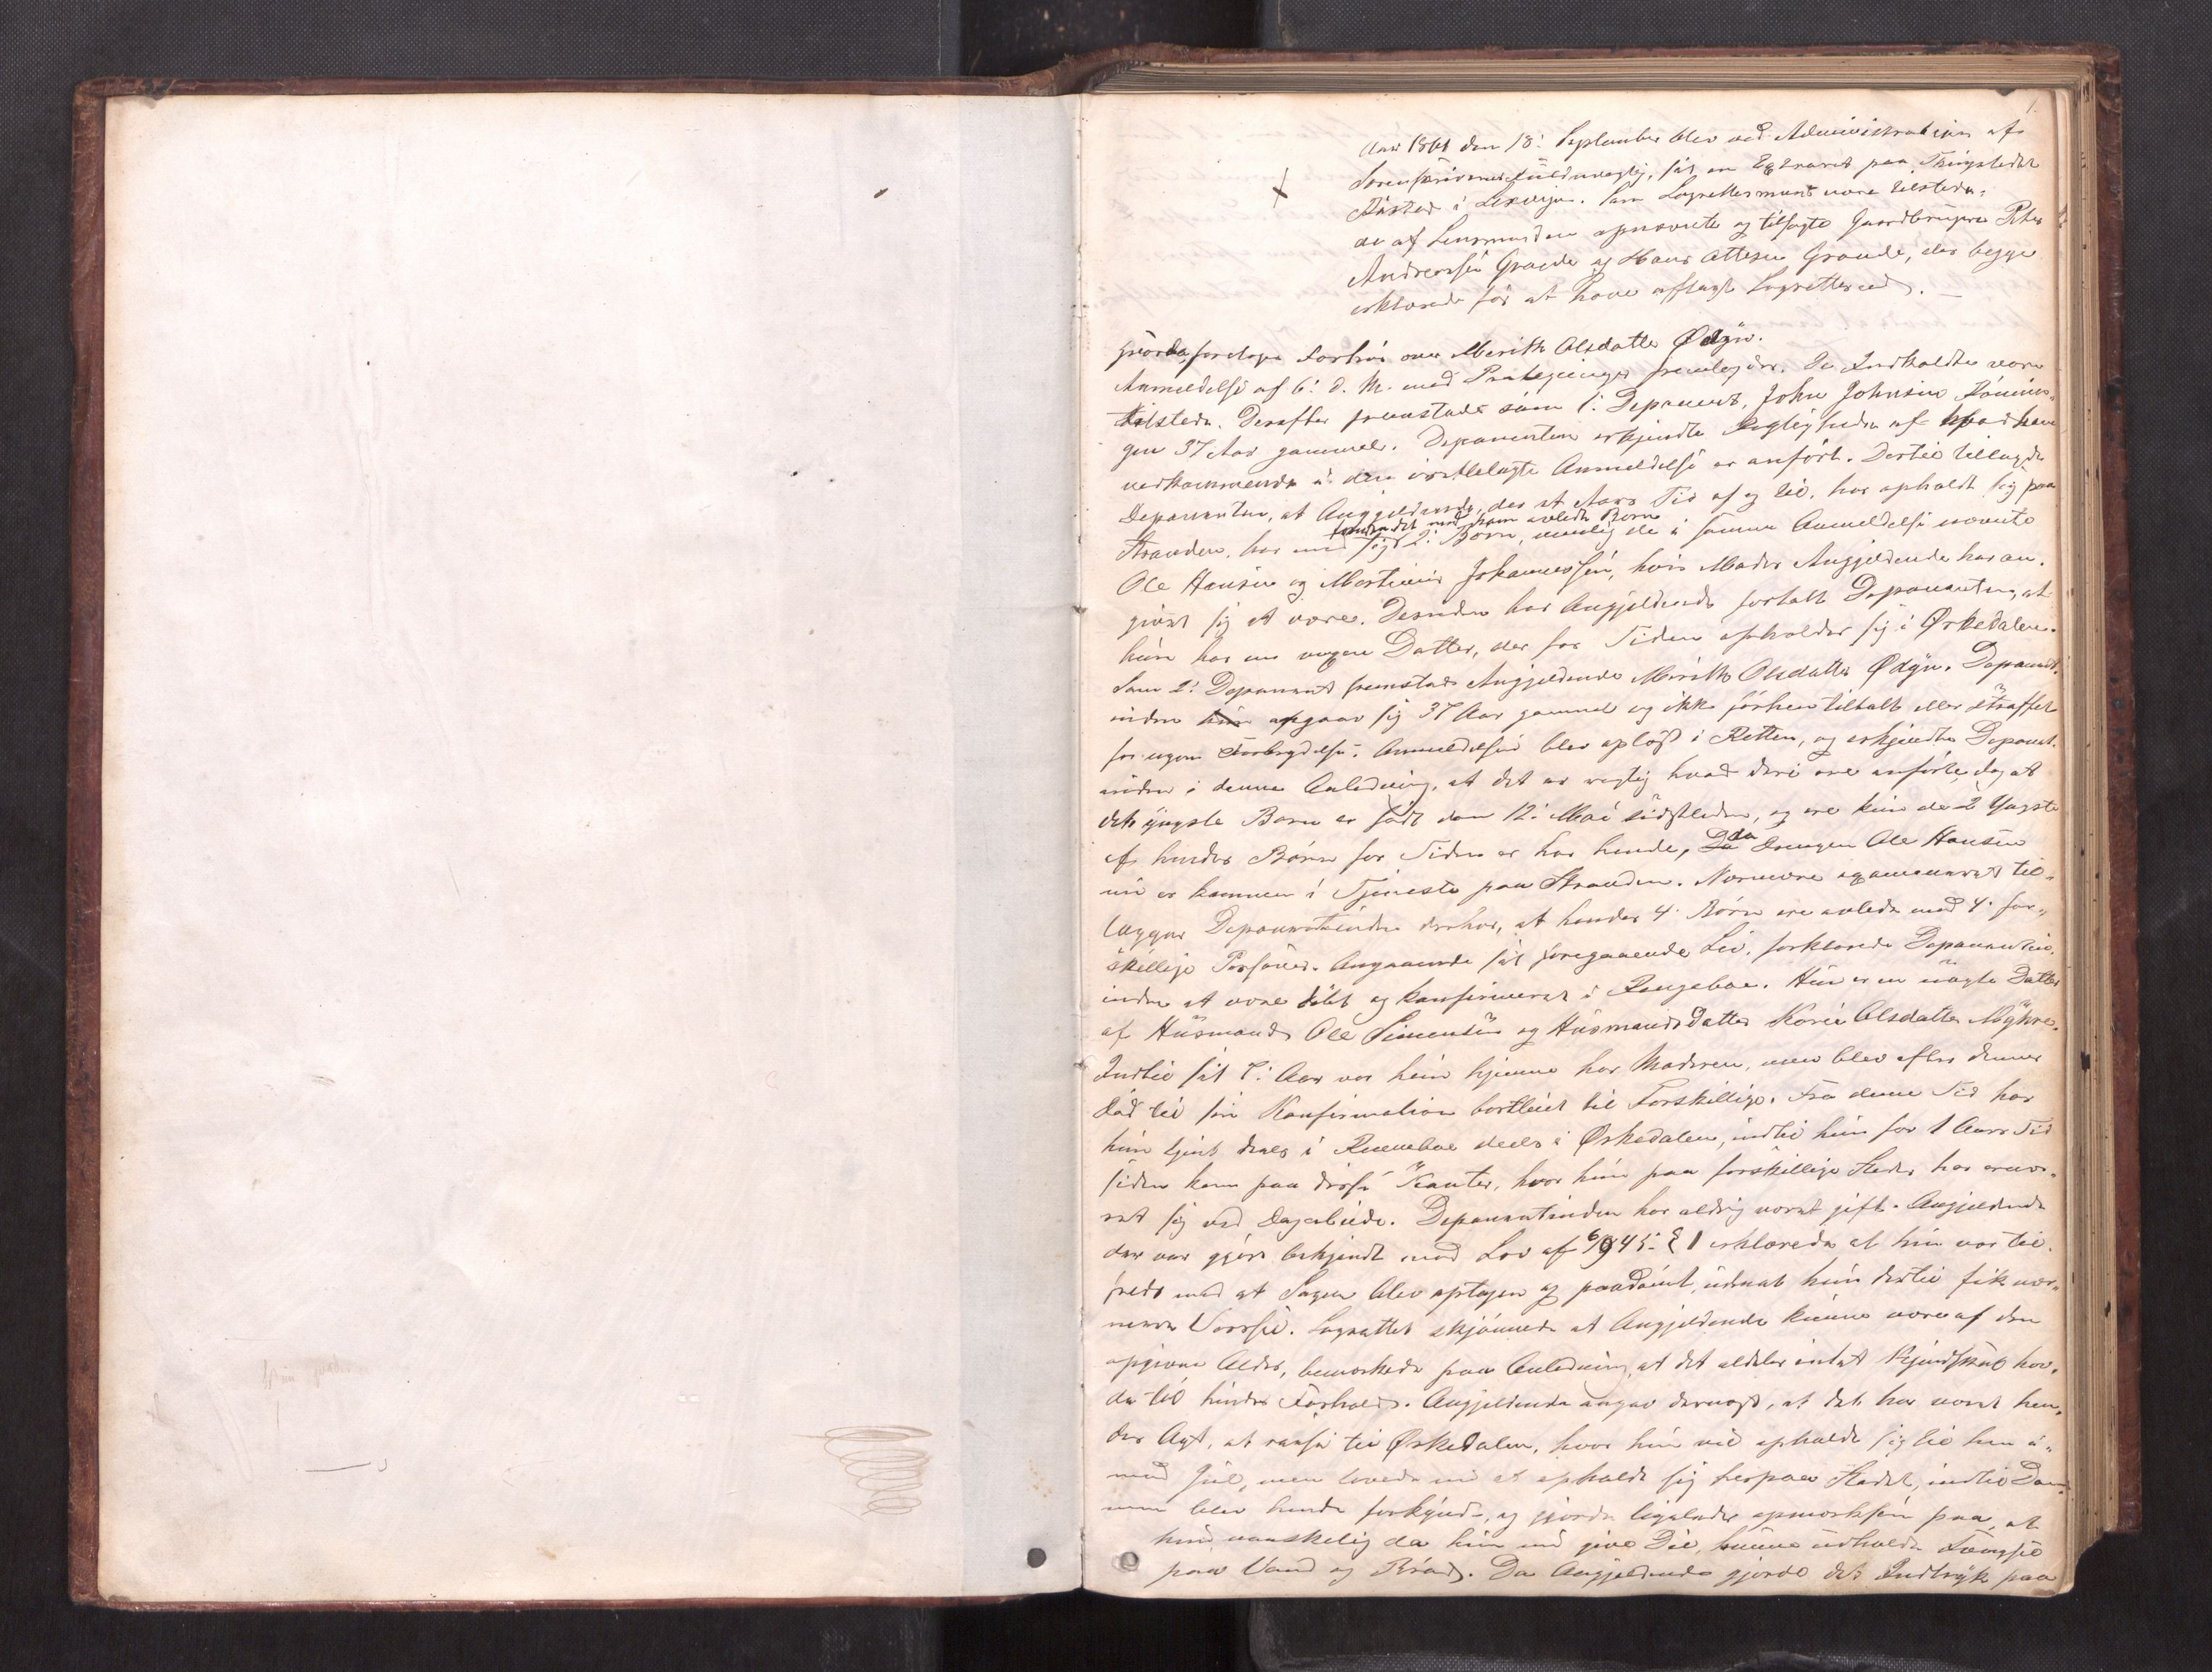 1.
Aar 1861 den 18: September blev ved Administration af
Sorenskriver, sat en Extraret paa Thingstedet
i Lexvigen. Som Lagrettesmænd vare tilstede:
de af Lensmanden opnævnte og tilsagte Gaardbrugere Peter
Andreassen Grande og Hans Ottesen Grande, der begge
erklærede før at have aflagt Lagrettesed. —
foretages Forhør over Merith Olsdatter Ødyn.
Anmeldelse af 6: d. M. med Paategninger fremlagdes. De Indkaldte vare
tilstede. Derefter fremstod som 1: Deponent, John Johnsen
gen 37 Aar gammel. Deponenten erkjendte Rigtigheden af hvad ham
vedkommende i den Anmeldelse er anført. Dertil tillagde
Deponenten, at Angjeldende, der et Aars Tid af og til, har opholdt sig paa
foruden det med ham avlede Barn
Stranden, har med sig 2: Børn, nemlig de i samme Anmeldelse nævnte
Ole Hansen og Johannessen, hvis Moder Angjeldende har an-
givet sig at være. Desuden har Angjeldende fortalt Deponenten, at
hun har en voxen Datter, der for Tiden opholder sig i Ørkedalen.
Som 2: Deponent fremstod Angjeldende Merith Olsdatter Ødyn. Deponent-
inden opgav sig 37 Aar gammel og ikke forhen tiltalt eller straffet
for nogen Forbrydelse. Anmeldelsen blev oplæst i Retten, og erkjendte Deponent-
inden i denne Anledning, at det er rigtig hvad deri er anført, dog at
det yngste Barn er født den 12: Mai sidstleden, og ere kun de 2 Yngste
af hendes Børn for Tiden er hos hende, da Drengen Ole Hansen
nu er kommen i Tjeneste paa Stranden. Nærmere examineret til-
lægger Deponentinden derhos, at hendes 4 Børn ere avlede med 4 for-
skillige Personer. Angaaende sit foregaaende Liv, forklarede Deponent-
inden at være døbt og konfirmeret i Renneboe. Hun er en uægte Datter
af Husmand Ole Simensen og Husmandsdatter Kari Olsdatter
Indtil sit 7: Aar var hun hjemme hos Moderen, men blev efter dennes
Død til sin Konfirmation bortleiet til Forskillige. Fra denne Tid har
hun tjent deels i Renneboe deels i Ørkedalen, indtil hun for 1 Aars Tid
siden kom paa disse Kanter, hvor hun paa forskillige Steder har ernæ-
ret sig ved Dagarbeide. Deponentinden har aldrig været gift. Angjeldende
der var gjort bekjendt med Lov af 6/9 45 § 1 erklærede at hun var til-
freds med at Sagen blev optagen og paadømt, uden at hun dertil fik nær-
mere Varsel. Lagrettet skjønnede at Angjeldende kunne være af den
opgivne Alder, bemærkede paa Anledning, at det aldeles intet Kjendskab hav-
de til hendes Forhold. Angjeldende angav dernæst, at det har været hen-
des Agt, at reise til Ørkedalen, hvor hun vil opholde sig til hen i-
mod Juul, men lovede nu at opholde sig herpaa Stedet, indtil Dom-
men blev hende forkyndt, og gjorde ligeledes opmærksom paa, at
hun vanskelig da hun nu give Die, kunne udholde Fængsel
paa Vand og Brød. Da Angjeldende gjorde det Indtryk paa